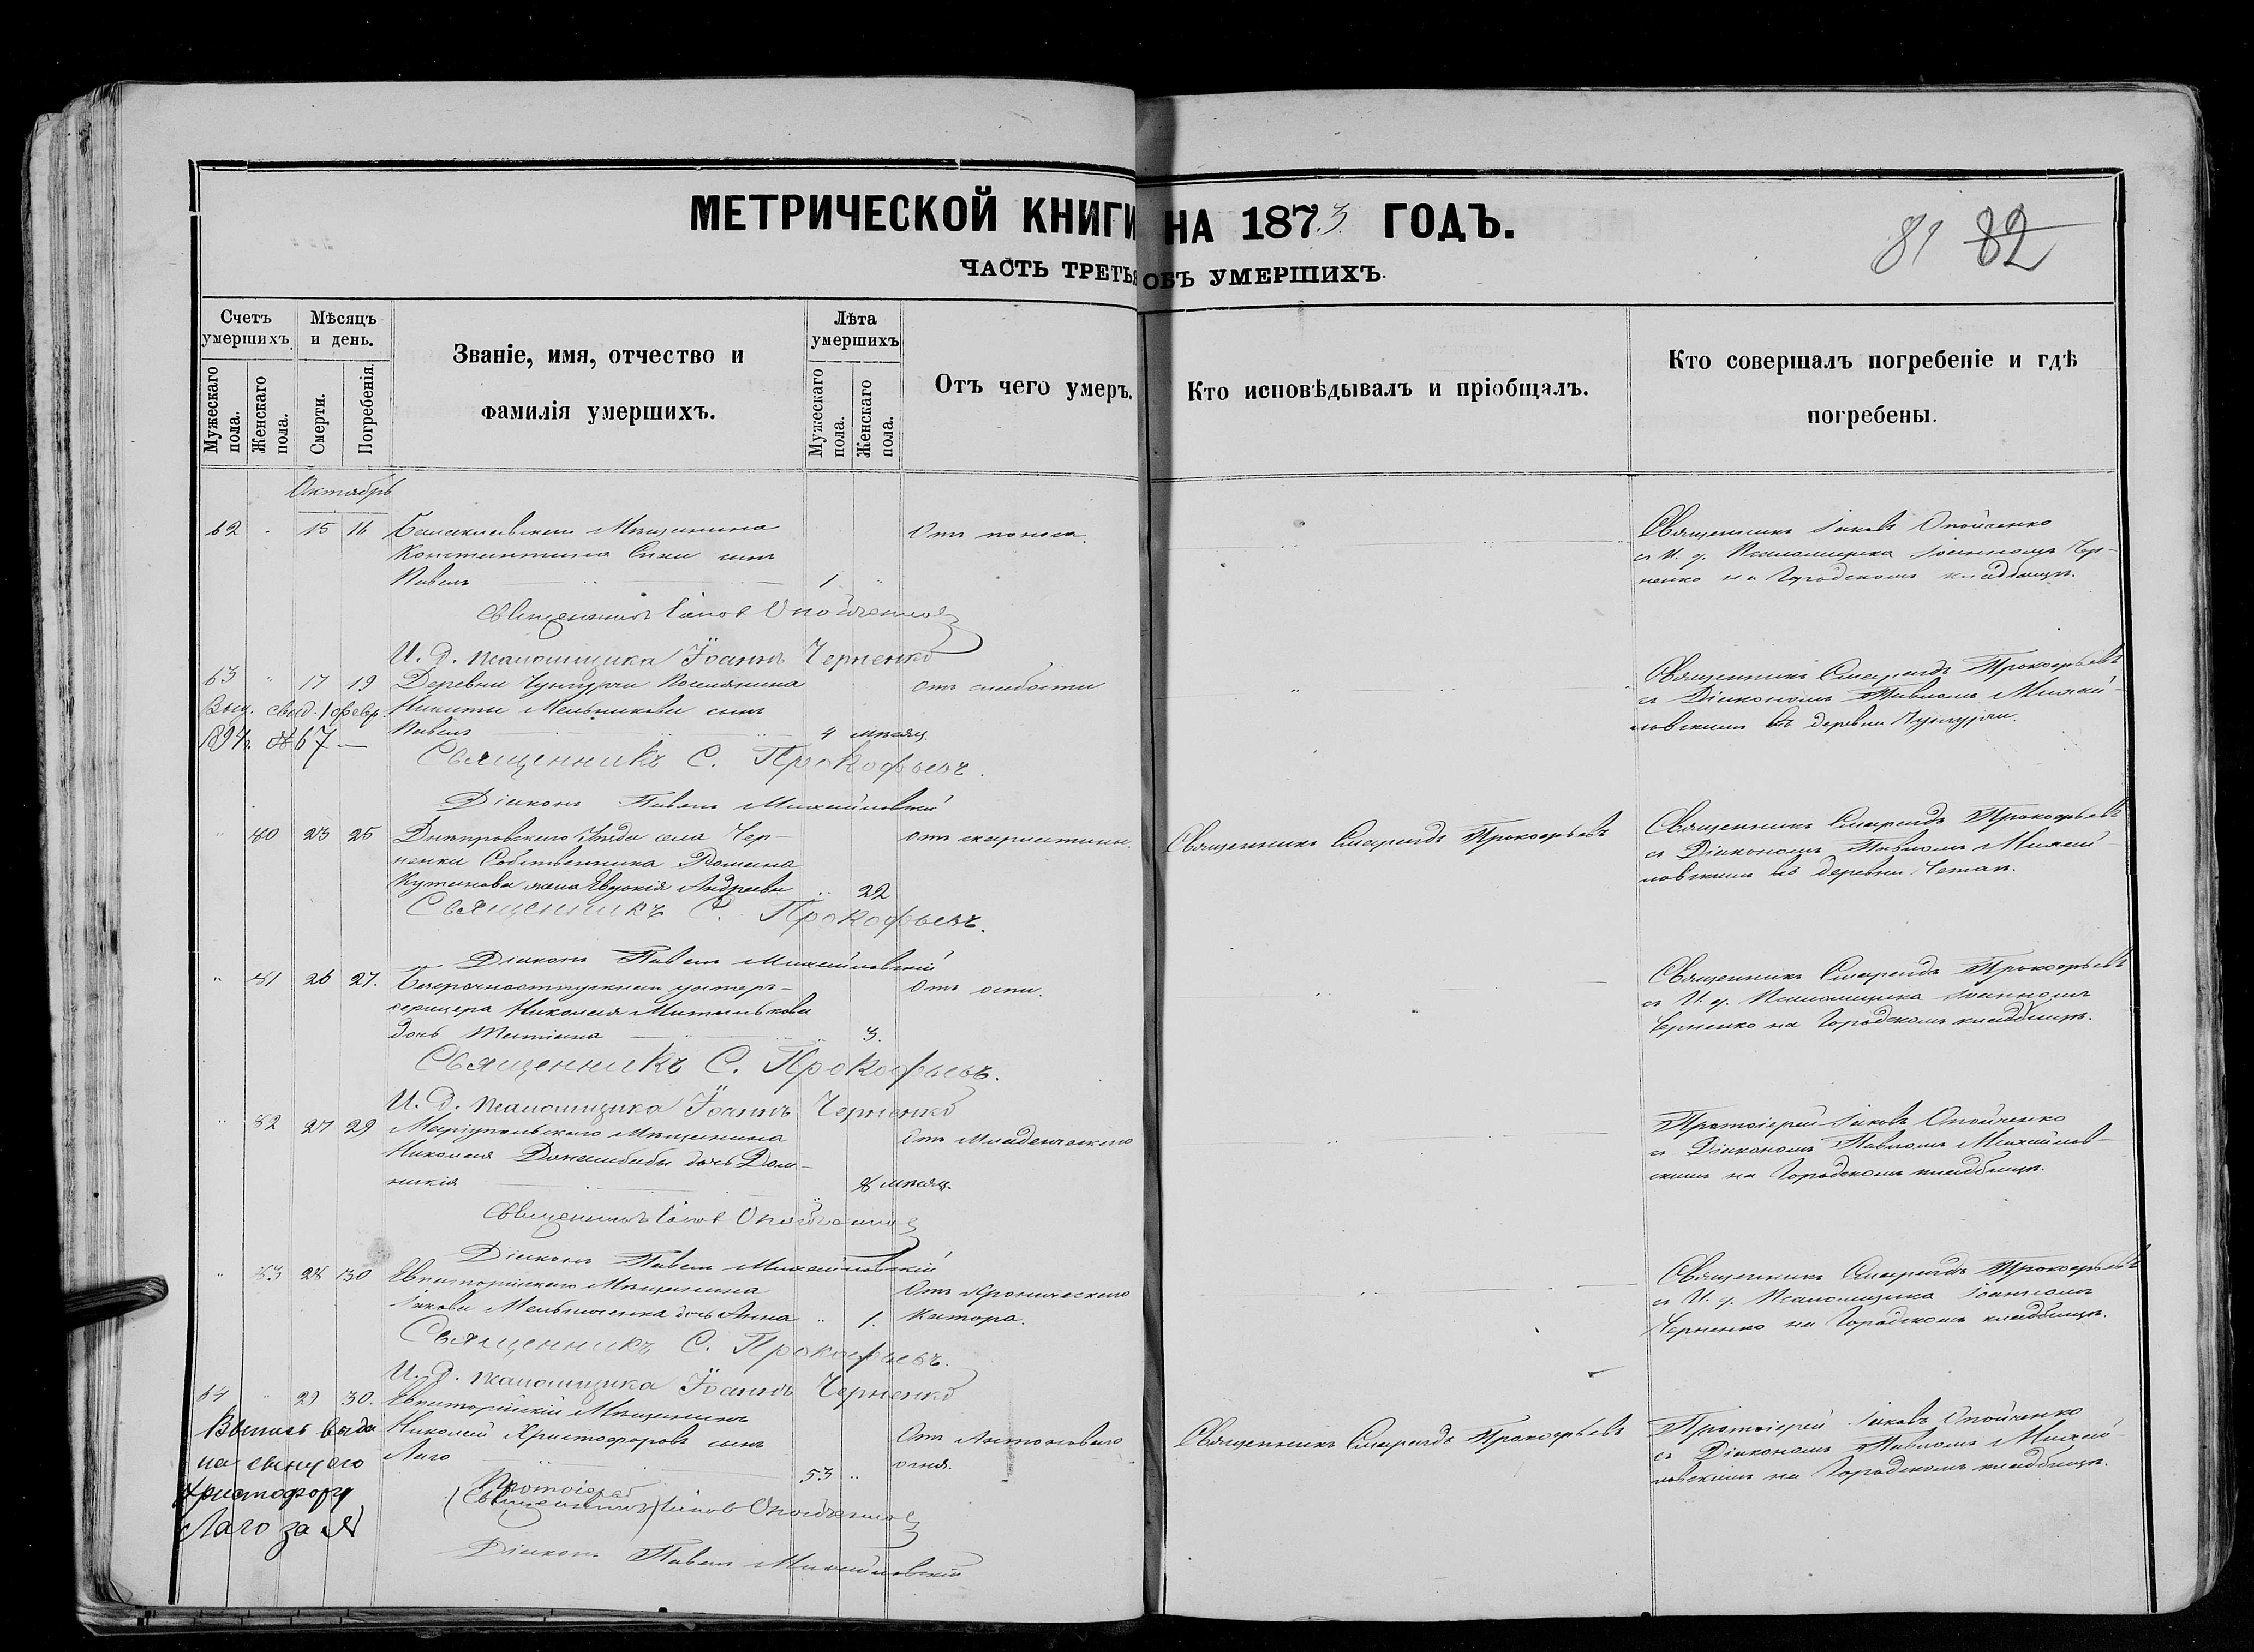 МЕТРИЧЕСКОЙ КНИГИ НА 1873 ГОДЪ.
81 82
ЧАСТЬ ТРЕТЬЯ ОБЪ УМЕРШИХЪ.
Счетъ умершихъ.
Мужескаго пола.
Женскаго пола.
Мѣсяцъ и день.
Смерти.
Погребенія.
Званіе, имя, отчество и
фамилія умершихъ.
Лѣта умершихъ
Мужескаго пола.
Женскаго пола.
Отъ чего умеръ.
Кто исповѣдывалъ и пріобщалъ.
Кто совершалъ погребеніе и гдѣ
погребены.
Октябрь
62 15 16 Мѣщанина Отъ поноса. Священникъ Іаковъ Опойченко
Константина сынъ съ И. д. Псаломщика Іоанномъ Чер-
Павелъ 1 ненко на Городскомъ кладбищѣ.
Священникъ Іаковъ Опойченко
И. д. псаломщика Іоаннъ Черненко
63 17 19 Деревни Поселянина отъ слабости Священникъ Смарагдъ Прокофьевъ
Выд. свид. 1 февр. Никиты Мельникова сынъ съ Діакономъ Павломъ Михай-
1894 г. № 67 — Павелъ 4 мѣсяц. ловскимъ въ деревни
Священникъ С. Прокофьевъ.
Діаконъ Павелъ Михайловскій
80 23 25 Днѣпровскаго Уѣзда села Чер- отъ Священникъ Смарагдъ Прокофьевъ Священникъ Смарагдъ Прокофьевъ
ненки Собственника съ Діакономъ Павломъ Михай-
жена Евдокія Андреева 22 ловскимъ въ деревни
Священникъ С. Прокофьевъ.
Діаконъ Павелъ Михайловскій
81 26 27. унтеръ- Отъ оспи. Священникъ Смарагдъ Прокофьевъ
офицера Николая съ И. д. Псаломщика Іоанномъ
дочь 3. Черненко на Городскомъ кладбищѣ.
Священникъ С. Прокофьевъ.
И. д. псаломщика Іоаннъ Черненко
82 27 29 Маріупольскаго Мѣщанина Отъ Младенческаго Протоіерей Іаковъ Опойченко
Николая дочь Дом- съ Діакономъ Павломъ Михайлов-
никія 8 мѣсяц. скимъ на Городскомъ кладбищѣ.
Священникъ Іаковъ Опойченко
Діаконъ Павелъ Михайловскій
83 28 30 Евпаторійскаго Мѣщанина Отъ Хроническаго Священникъ Смарагдъ Прокофьевъ
Іакова Мельниченка дочь Анна 1. Катара. съ И. д. Псаломщика Іоанномъ
Черненко на Городскомъ кладбищѣ.
Священникъ С. Прокофьевъ.
И. д. псаломщика Іоаннъ Черненко
64 29 30. Евпаторійскій Мѣщанинъ
Николай Христофоровъ сынъ Отъ Антонового Священникъ Смарагдъ Прокофьевъ Протоіерей Іаковъ Опойченко
Лаго 53 огня. съ Діакономъ Павломъ Михай-
ловскимъ на Городскомъ кладбищѣ.
Выпись выда
на сыну его
Христофору
Лаго за №
Протоіерей
(Священникъ) Іаковъ Опойченко
Діаконъ Павелъ Михайловскій